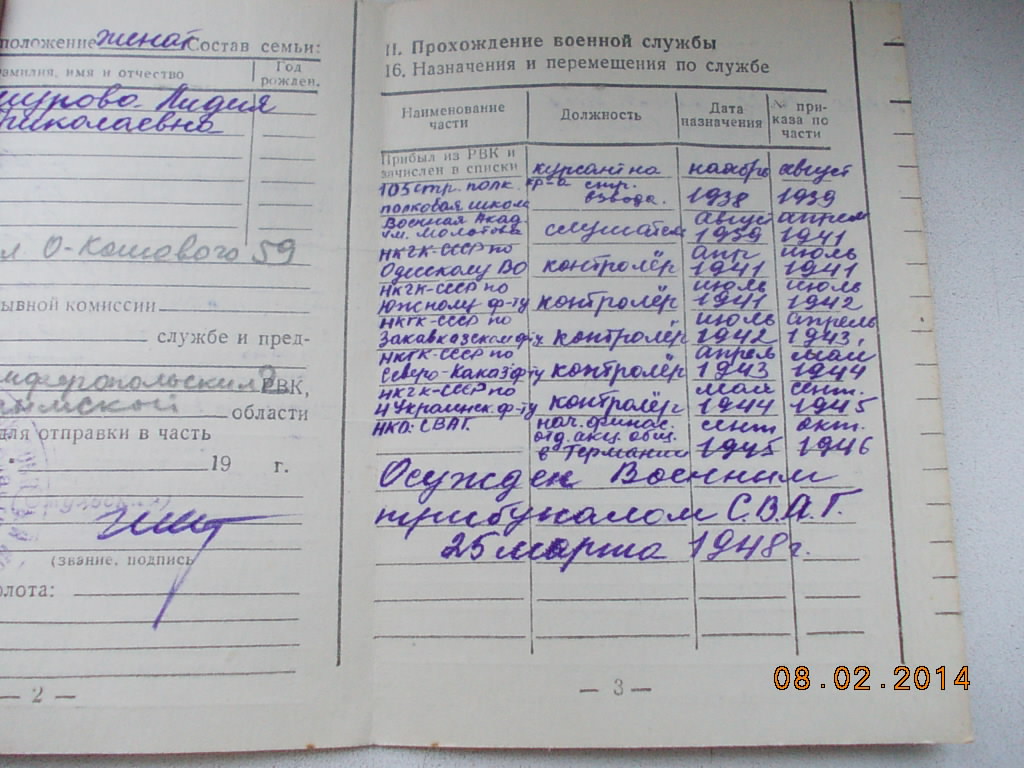 положение женат Состав семьи:
фамилия, имя и отчество
Год рожден.
Лидия
николаевна
О-Кошового 59
ывной комиссии
службе и пред-
РВК,
области
для отправки в часть
19 г.
(звание, подпись
олота:
— 2 —
II. Прохождение военной службы
16. Назначения и перемещения по службе
Наименование части
Должность
Дата назначения
№ при-каза по части
Прибыл из РВК и зачислен в списки
103 стр. полк. полковая школа
курсант на стр. взвода.
ноябрь 1938
август 1939
Военная Акад. им. Молотова
слушатель
август 1939
апрель 1941
НКГК-СССР по Одесскому ВО
контролёр
апр 1941
июль 1941
НКГК-СССР по Южному ф-ту
контролёр
июль 1941
июль 1942
НКГК-СССР по Закавказском ф-ту
контролёр
июль 1942
апрель 1943,
НКГК-СССР по Северо-Каказ ф-ту
контролёр
апрель 1943
май 1944
НКГК-СССР по 4 Украинск. ф-ту
контролёр
мая 1944
сент. 1945
НКО: СВАГ.
нач. финас. отд. акц. общ. в Германии
сент 1945
окт. 1946
Осужден Военным
трибуналом С.В.А.Г.
25 марта 1948 г.
— 3 —
08.02.2014